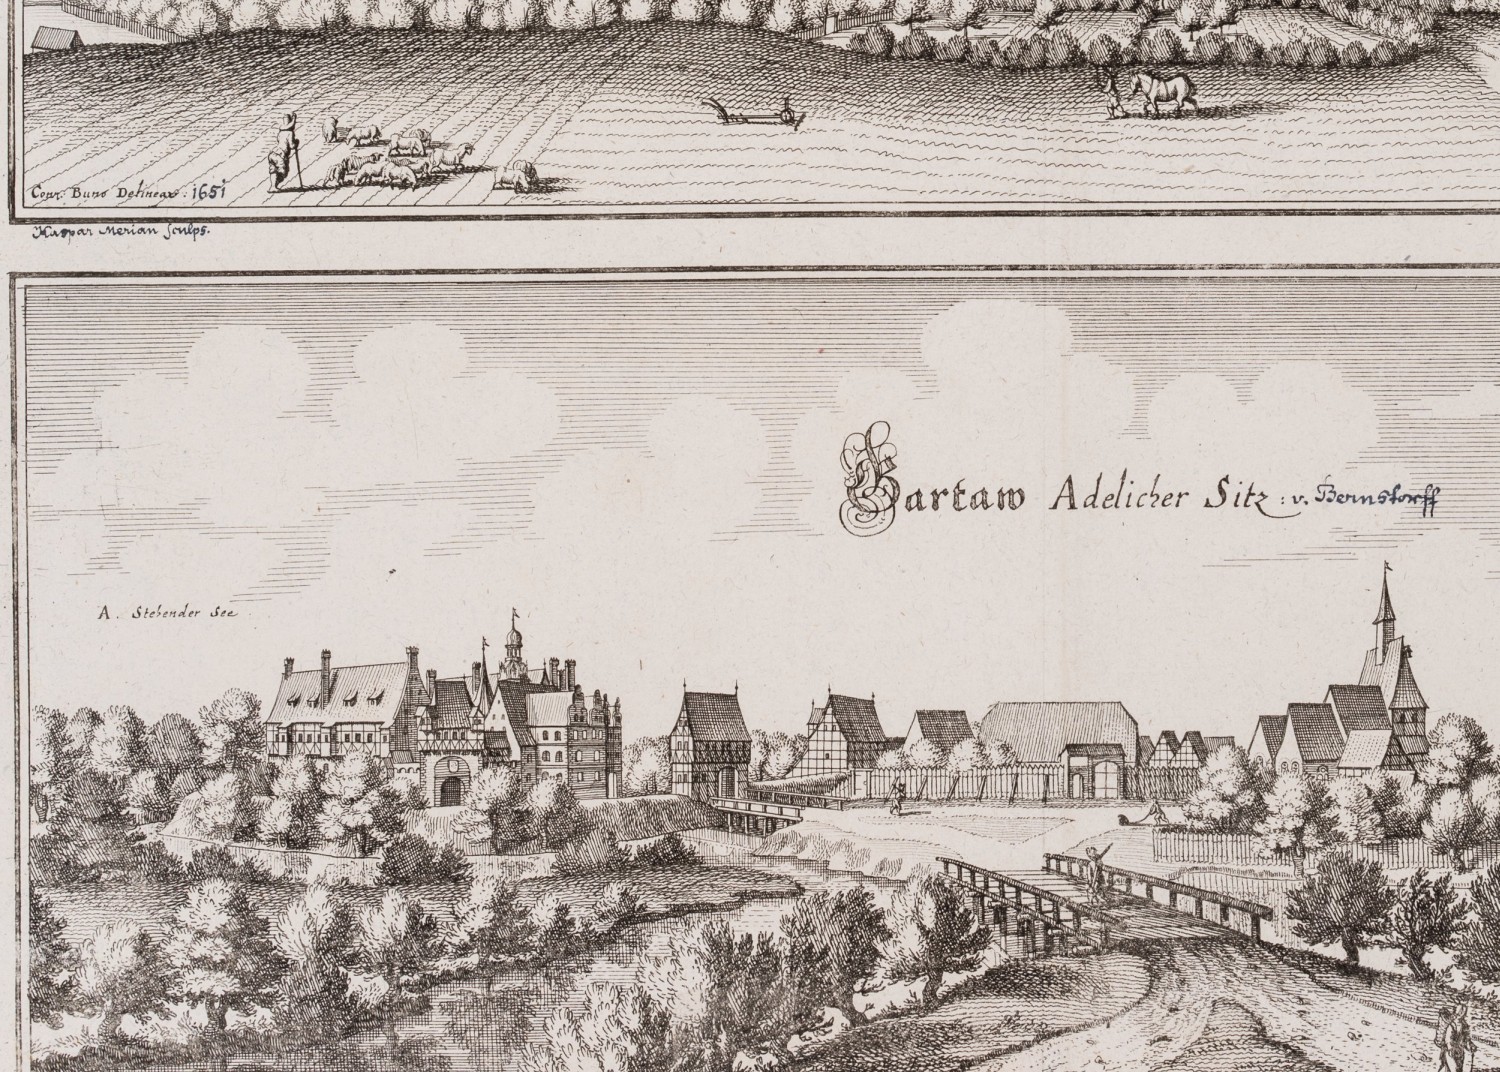 Conr. Buno Delineav: 1651
Kaspar Merian Sculps.
Gartaw Adelicher Sitz : v. Bernstorff
A. Stehender See